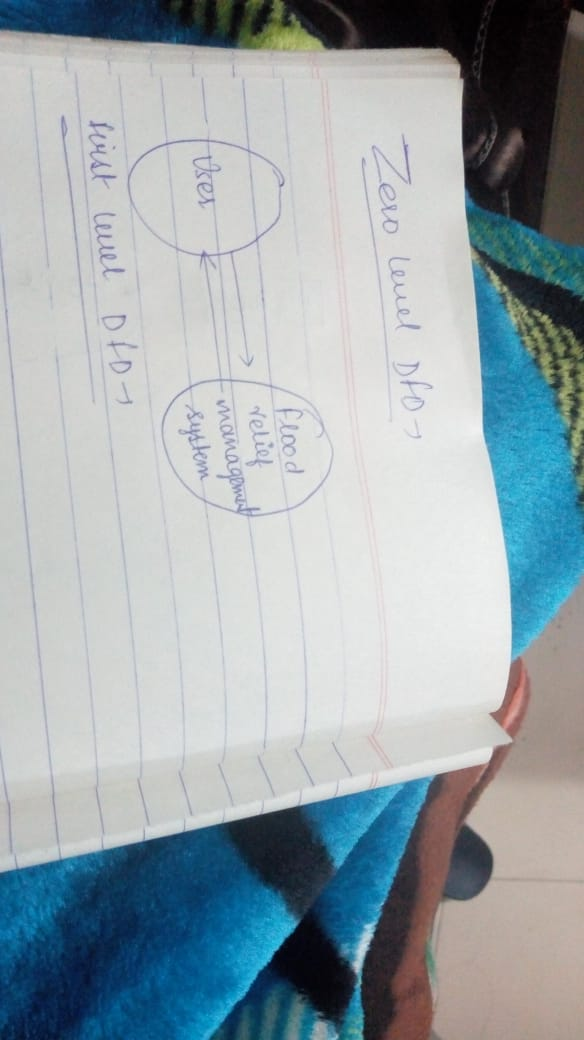 Zero level DFD →
User
flood
relief
management
system
first level DFD →